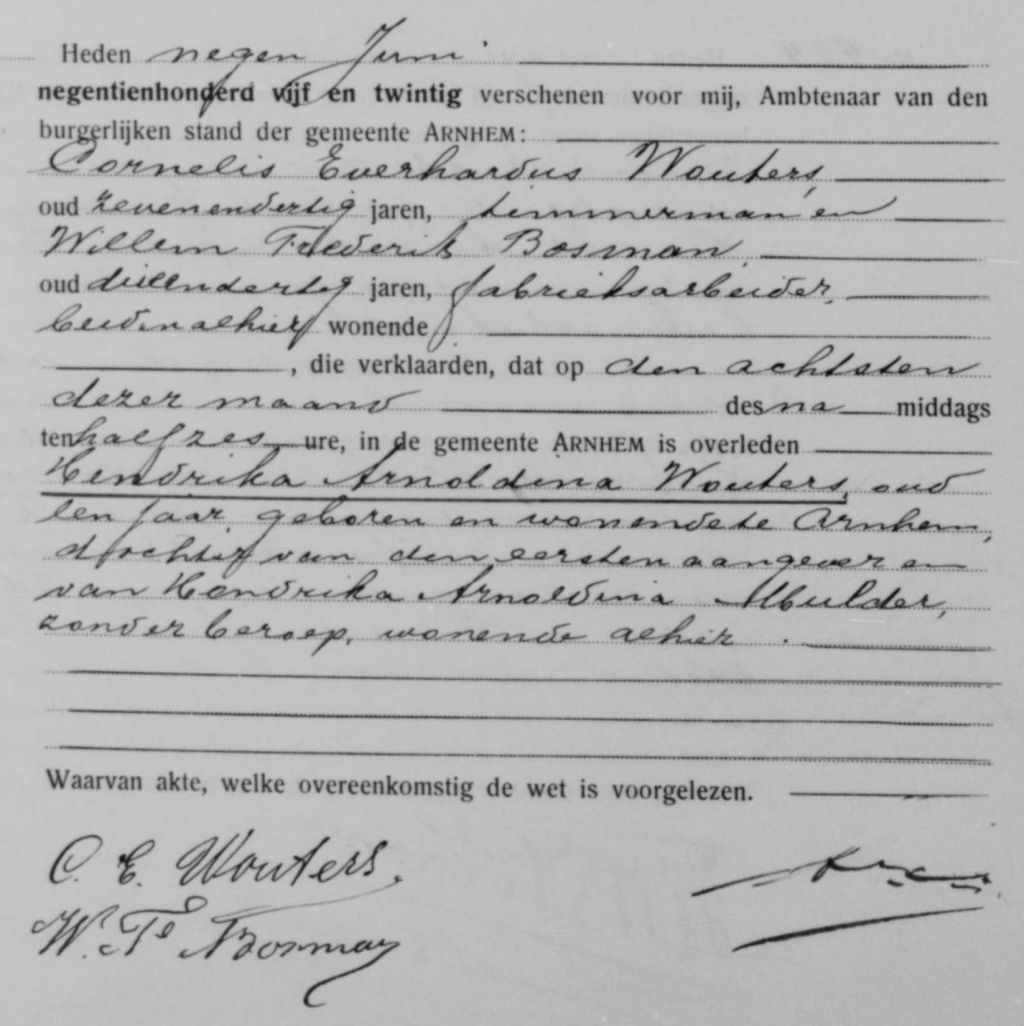 Heden negen Juni
negentienhonderd vijf en twintig verschenen voor mij, Ambtenaar van den
burgerlijken stand der gemeente ARNHEM:
Cornelis Everhardus Wouters,
oud zevenendertig jaren, timmerman en
Willem Frederik Bosman,
oud drieendertig jaren, fabrieksarbeider,
beiden alhier wonende
, die verklaarden, dat op den achtsten
dezer maand des na middags
ten half zes ure, in de gemeente ARNHEM is overleden
Hendrika Arnoldina Wouters, oud
een jaar, geboren en wonende te Arnhem,
dochter van den eersten aangever en
van Hendrika Arnoldina Mulder,
zonder beroep, wonende alhier.
Waarvan akte, welke overeenkomstig de wet is voorgelezen.
C. E. Wouters.
W. F. Bosman